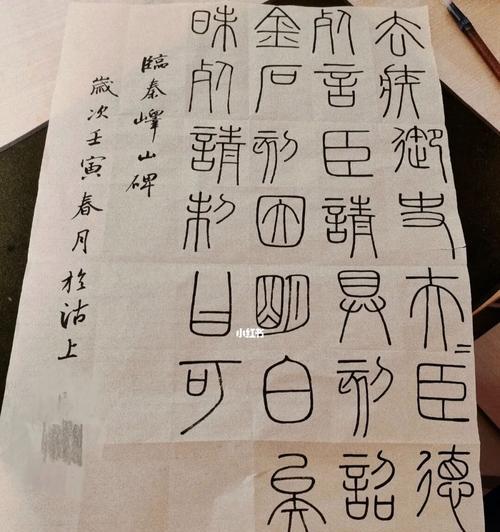 去疾御史夫=臣德
死言臣請具刻詔
金石刻因明白矣
昧死請制曰可
臨秦嶧山碑
歲次壬寅春月於沽上
小红书